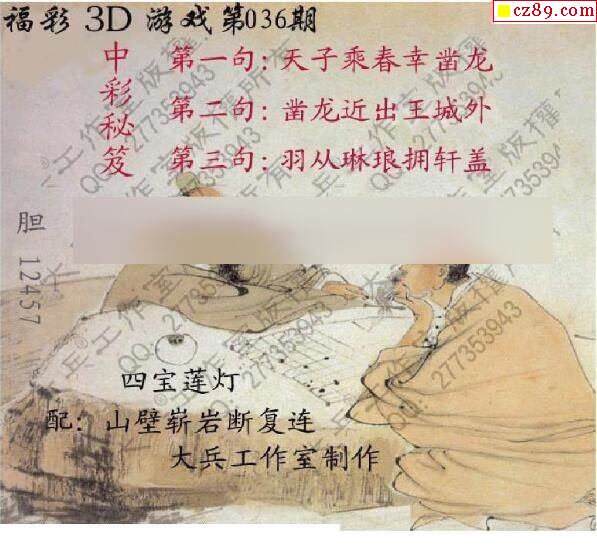 福彩 3D 游戏第036期
cz89.com
中彩秘笈
第一句:天子乘春幸凿龙
第二句:凿龙近出王城外
第三句:羽从琳琅拥轩盖
胆 12457
四宝莲灯
配:山壁崭岩断复连
大兵工作室制作
大兵工作室版權所有
QQ:277353943